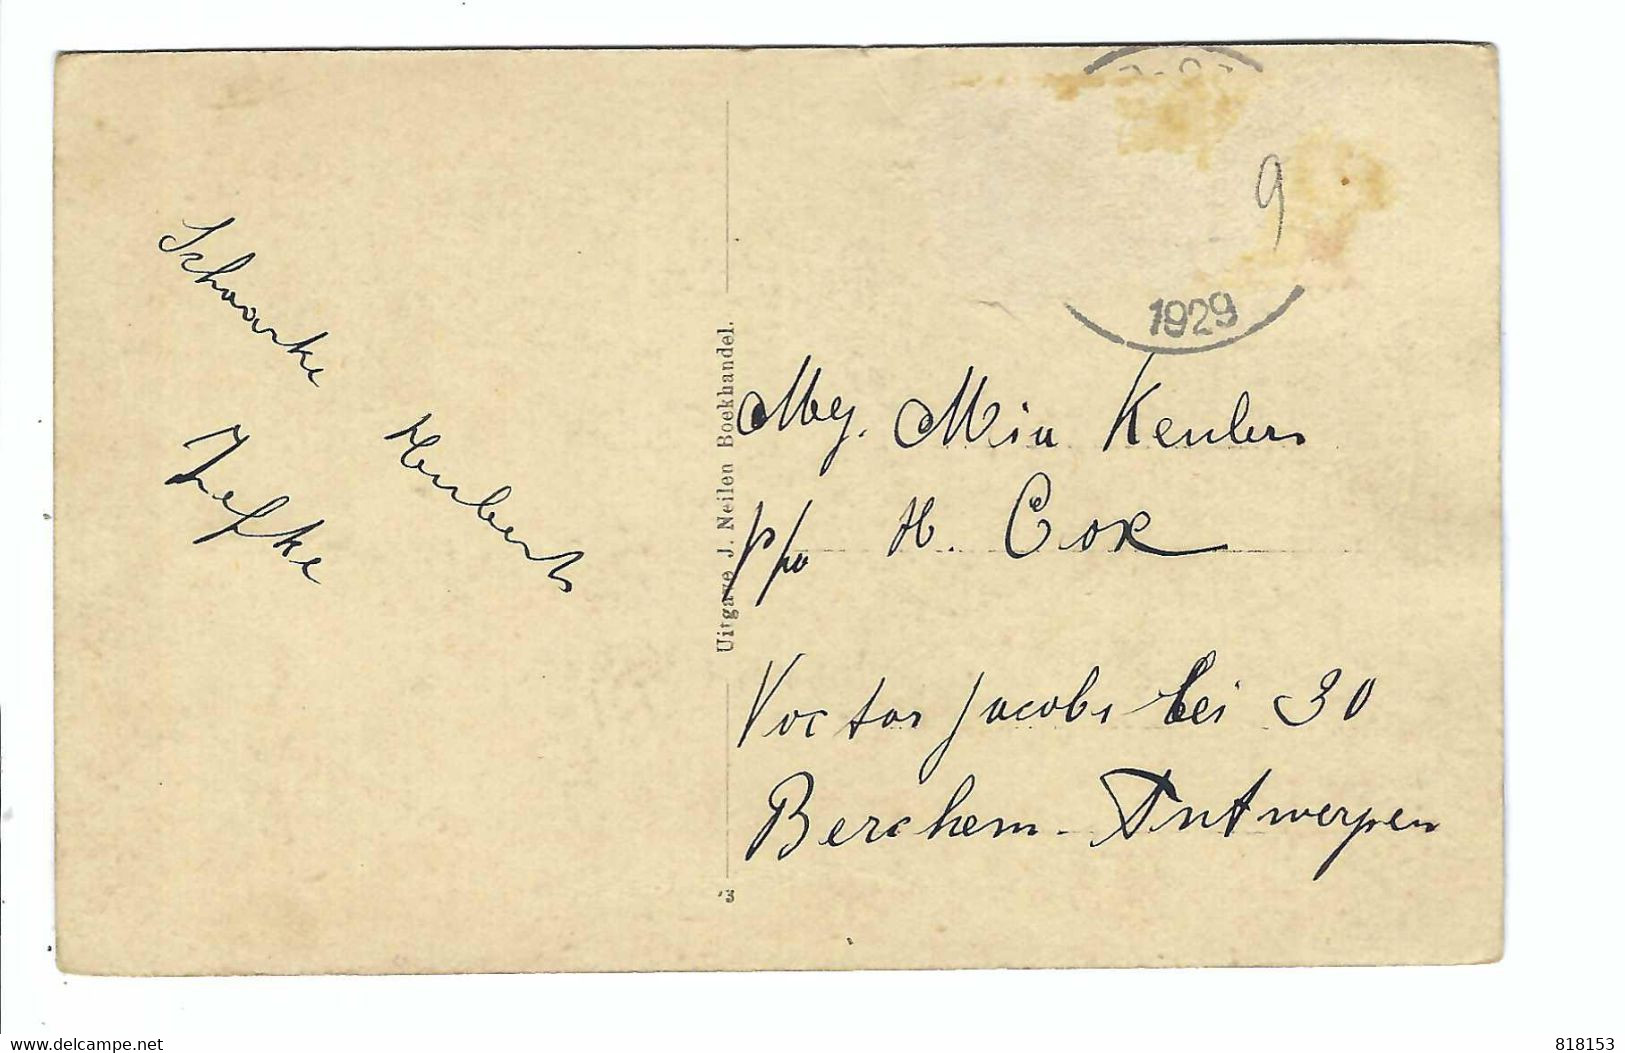 Schaarke Huberts
Jefke
Uitgave J. Neilen Boekhandel.
'3
9
1929
Mej. Mia Keulers
p/a H. Cox
Voctor Jacobs lei 30
Berchem-Antwerpen
www.delcampe.net
818153